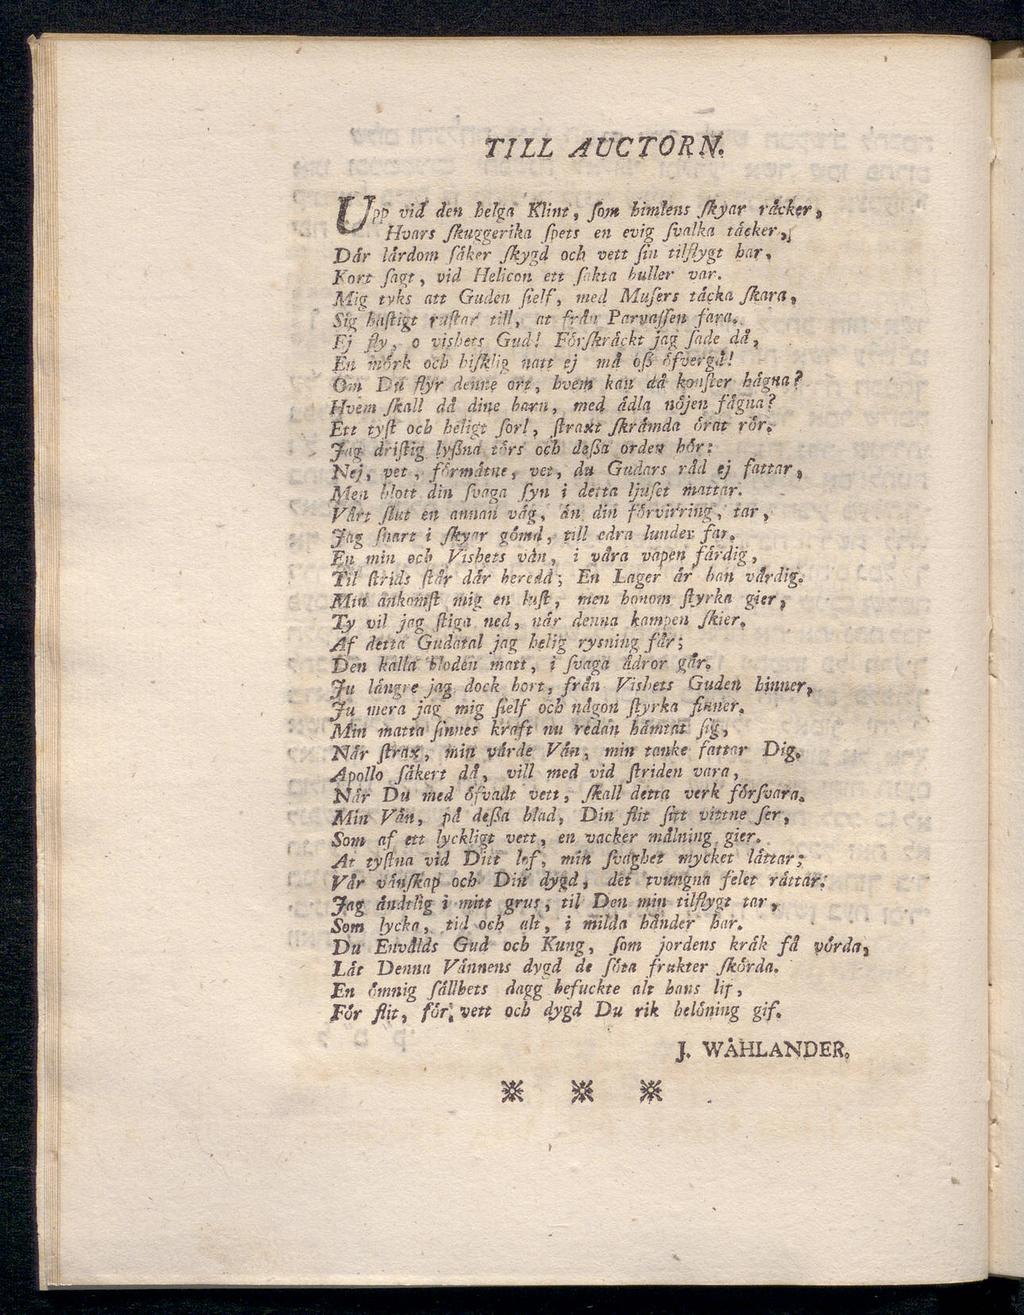 TILL AUCTORN.
Upp vid den helga Klint, ſom himlens ſkyar råcker,
Hvars ſkuggerika ſpets en evig ſvalka täcker,
Där lärdom ſäker ſkygd och vett ſin tilflygt har,
Kort ſagt, vid Helicon ett ſakta buller var.
Mig tyks att Guden ſielf, med Muſers täcka ſkara,
Sig haſtigt ruſtar till, at från Parnaſſen fara.
Ej fly, o vishets Gud! Förſkräckt jag ſade då,
En mörk och hiſklig natt ej må oß öfvergå!
Om Du flyr denne ort, hvem kan då konſter hägna?
Hvem ſkall då dine barn, med ädla nöjen fägna?
Ett tyſt och heligt ſorl, ſtraxt ſkrämda örat rör,
Jag driſtig lyßna törs och deßa orden hör:
Nej, vet, förmätne, vet, du Gudars råd ej fattar,
Men blott din ſvaga ſyn i detta ljuſet mattar.
Vårt ſlut en annan väg, än din förvirring, tar,
Jag ſnart i ſkyar gömd, till edra lunder far,
En min och Vishets vän, i våra vapen färdig,
Til ſtrids ſtår där beredd; En Lager är han värdig.
Min ankomſt mig en luſt, men honom ſtyrka gier,
Ty vil jag ſtiga ned, när denna kampen ſkier.
Af detta Gudatal jag helig rysning får;
Den kalla bloden matt, i ſvaga ådror går.
Ju längre jag dock bort, från Vishets Guden hinner,
Ju mera jag mig ſielf och någon ſtyrka finner.
Min matta ſinnes kraft nu redan hämtat ſig,
När ſtrax, min värde Vän, min tanke fattar Dig.
Apollo ſäkert då, vill med vid ſtriden vara,
När Du med öfvadt vett, ſkall detta verk förſvara.
Min Vän, på deßa blad, Din flit ſitt vittne ſer,
Som af ett lyckligt vett, en vacker målning gier.
At tyſtna vid Ditt lof, min ſvaghet mycket lättar;
Vår vänſkap och Din dygd, det tvungna felet rättar:
Jag ändtlig i mitt grus, til Den min tilflygt tar,
Som lycka, tid och alt, i milda händer har.
Du Envålds Gud och Kung, ſom jordens kräk få vörda,
Låt Denna Vännens dygd de ſöta frukter ſkörda.
En ömnig ſällhets dagg befuckte alt hans lif,
För flit, för vett och dygd Du rik belöning gif.
J. WÅHLANDER.